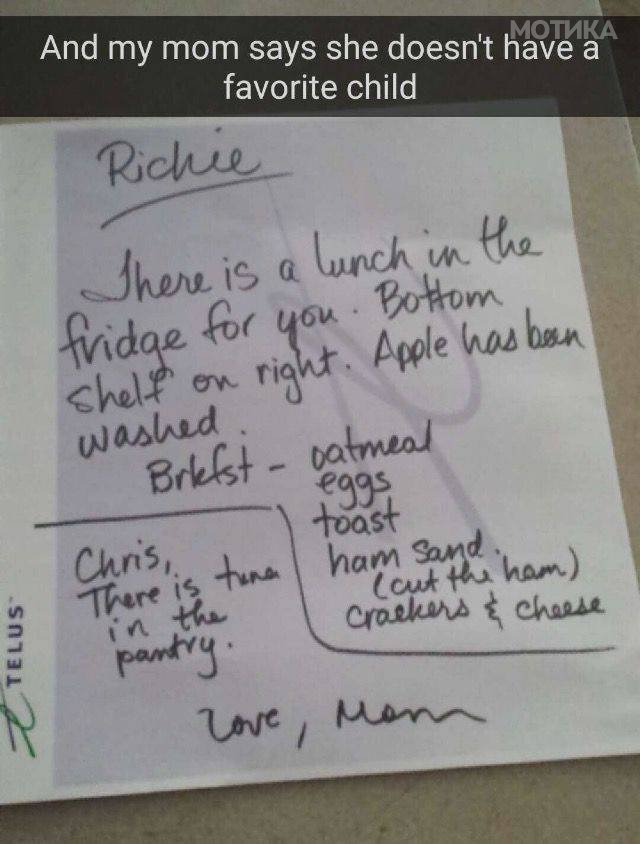 МОТИКА
And my mom says she doesn't have a
favorite child
Richie
There is a lunch in the
fridge for you. Bottom
shelf on right. Apple has been
washed.
Brkfst - oatmeal
eggs
toast
ham sand.
(cut the ham)
crackers & cheese
Chris,
There is tuna
in the
pantry.
Love, Mom
TELUS